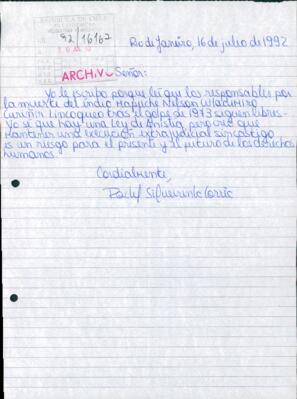 REPUBLICA DE CHILE
92/16162
Rio de Janeiro, 16 de julio de 1992
ARCHIVO
Señor:
Yo le escribo porque leí que los responsables por
la muerte del indio Mapuche Nelson Wladimiro
Curiñir Lincoqueo tras el golpe de 1973 siguen libres.
Yo sé que hay una Ley de Amistia, pero creo que
mantener una execución extrajudicial sin castigo
es un riesgo para el presente y el futuro de los derechos
humanos.
Cordialmente,